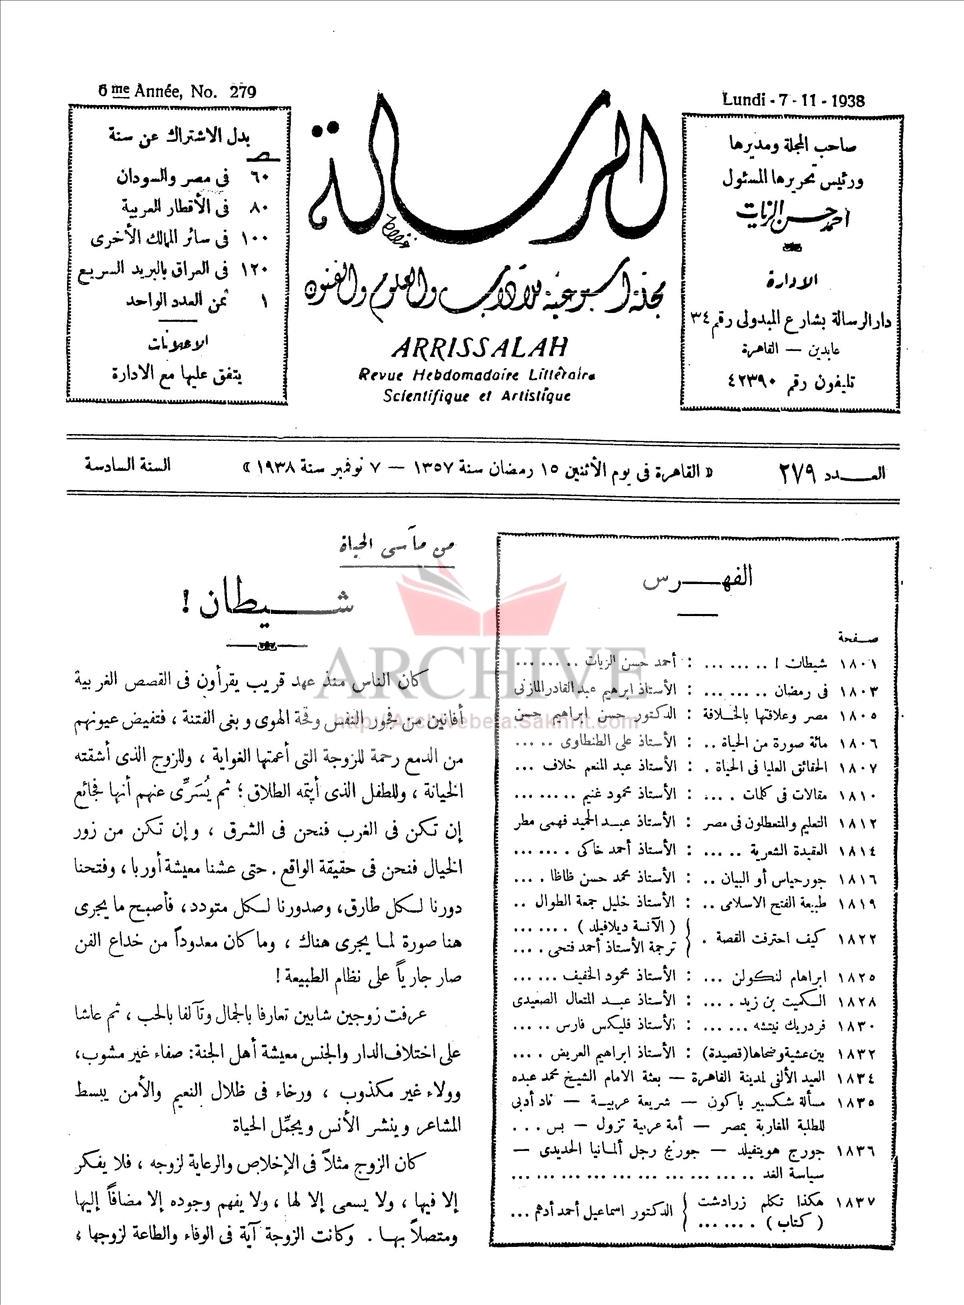 6me Année, No. 279
Lundi - 7 - 11 - 1938
صاحب المجلة ومديرها
ورئيس تحريرها المسئول
احمد حسن الزيات
الادارة
دار الرسالة بشارع المبدولى رقم ٣٤
عابدين — القاهرة
تليفون رقم ٤٢٣٩٠
الرسالة
مجلة أسبوعية للآداب والعلوم والفنون
ARRISSALAH
Revue Hebdomadaire Littéraire
Scientifique et Artistique
بدل الاشتراك عن سنة
ص
٦٠ فى مصر والسودان
٨٠ فى الأقطار العربية
١٠٠ فى سائر الممالك الأخرى
١٢٠ فى العراق بالبريد السريع
١ ثمن العدد الواحد
الاعلانات
يتفق عليها مع الادارة
العـــدد ٢٧٩
« القاهرة فى يوم الأثنين ١٥ رمضان سنة ١٣٥٧ — ٧ نوفمبر سنة ١٩٣٨ »
السنة السادسة
الفهـــرس
صفحة
١٨٠١ شيطان ! ... ... ... : أحمد حسن الزيات ... ... ...
١٨٠٣ فى رمضان ... ... ... : الأستاذ ابرهيم عبد القادر المازنى
١٨٠٥ مصر وعلاقتها بالخلافة : الدكتور حسن ابراهيم حسن
١٨٠٦ مائة صورة من الحياة .. : الأستاذ على الطنطاوى ... ...
١٨٠٧ الحقائق العليا فى الحياة . : الأستاذ عبد المنعم خلاف ...
١٨١٠ مقالات فى كلمات . ... : الأستاذ محمود غنيم ... ... ...
١٨١٢ التعليم والمتعطلون فى مصر : الأستاذ عبـد الحميد فهمى مطر
١٨١٤ العقيدة الشعرية ... ... : الأستاذ أحمد خاكى . ... ...
١٨١٦ جورجياس أو البيان .. : الأستاذ محمد حسن ظاظا . ...
١٨١٩ طبيعة الفتح الاسلامى .. : الأستاذ خليل جمعة الطوال ..
١٨٢٢ كيف احترفت القصة . { ( الآنسة ديلافيلد ) . ... ...
ترجمة الأستاذ أحمد فتحى . ...
١٨٢٥ ابراهام لنكولن ... ... : الأستاذ محمود الخفيف ... ...
١٨٢٨ الـكميت بن زيد . ... : الأستاذ عبـد المتعال الصعيدى
١٨٣٠ فردريك نيتشه ... ... : الأستاذ فليكس فارس ... ...
١٨٣٢ بين عشية وضحاها (قصيدة) : الأستاذ ابراهيم العريض . ...
١٨٣٤ العيد الألفى لمدينة القاهرة — بعثة الامام الشيخ محمد عبده
١٨٣٥ مسألة شكسبير باكون — شريعة عربيـة — ناد أدبى
للطلبة المغاربة بمصر — أمة عربية تزول — بس . ...
١٨٣٦ جورج هويتفيلد — جورنج رجل ألمانيا الحديدى —
سياسة الغد ... ... ... ... ... ... ... ...
١٨٣٧ هكذا تكلم زرادشت { الدكتور اسماعيل أحمد أدهم ...
( كتاب ) . ... ...
من مآسى الحياة
شـــيطان !
كان الناس منذ عهد قريب يقرأون فى القصص الغربية
أفانين من فجور النفس وقحة الهوى وبغى الفتنة ، فتفيض عيونهم
من الدمع رحمة للزوجة التى أعمتها الغواية ، وللزوج الذى أشقته
الخيانة ، وللطفل الذى أيتمه الطلاق ؛ ثم يُسَرِّى عنهم أنها فجائع
إن تـكن فى الغرب فنحن فى الشرق ، وإن تكن من زور
الخيال فنحن فى حقيقة الواقع . حتى عشنا معيشة أوربا ، وفتحنا
دورنا لـكل طارق، وصدورنا لـكل متودد، فأصبح ما يجرى
هنا صورة لما يجرى هناك ، وما كان معدوداً من خداع الفن
صار جارياً على نظام الطبيعة !
عرفت زوجين شابين تعارفا بالجمال وتآلفا بالحب ، ثم عاشا
على اختلاف الدار والجنس معيشة أهل الجنة: صفاء غير مشوب،
وولاء غير مكذوب ، ورخاء فى ظلال النعيم والأمن يبسط
المشاعر وينشر الأنس ويجمِّل الحياة
كان الزوج مثلاً فى الإخلاص والرعاية لزوجه ، فلا يفكر
إلا فيها ، ولا يسعى إلا لها ، ولا يفهم وجوده إلا مضافاً إليها
ومتصلاً بهـا . وكانت الزوجة آية فى الوفاء والطاعة لزوجها ،
ARCHIVE
http://Archivebeta.Sakhrit.com